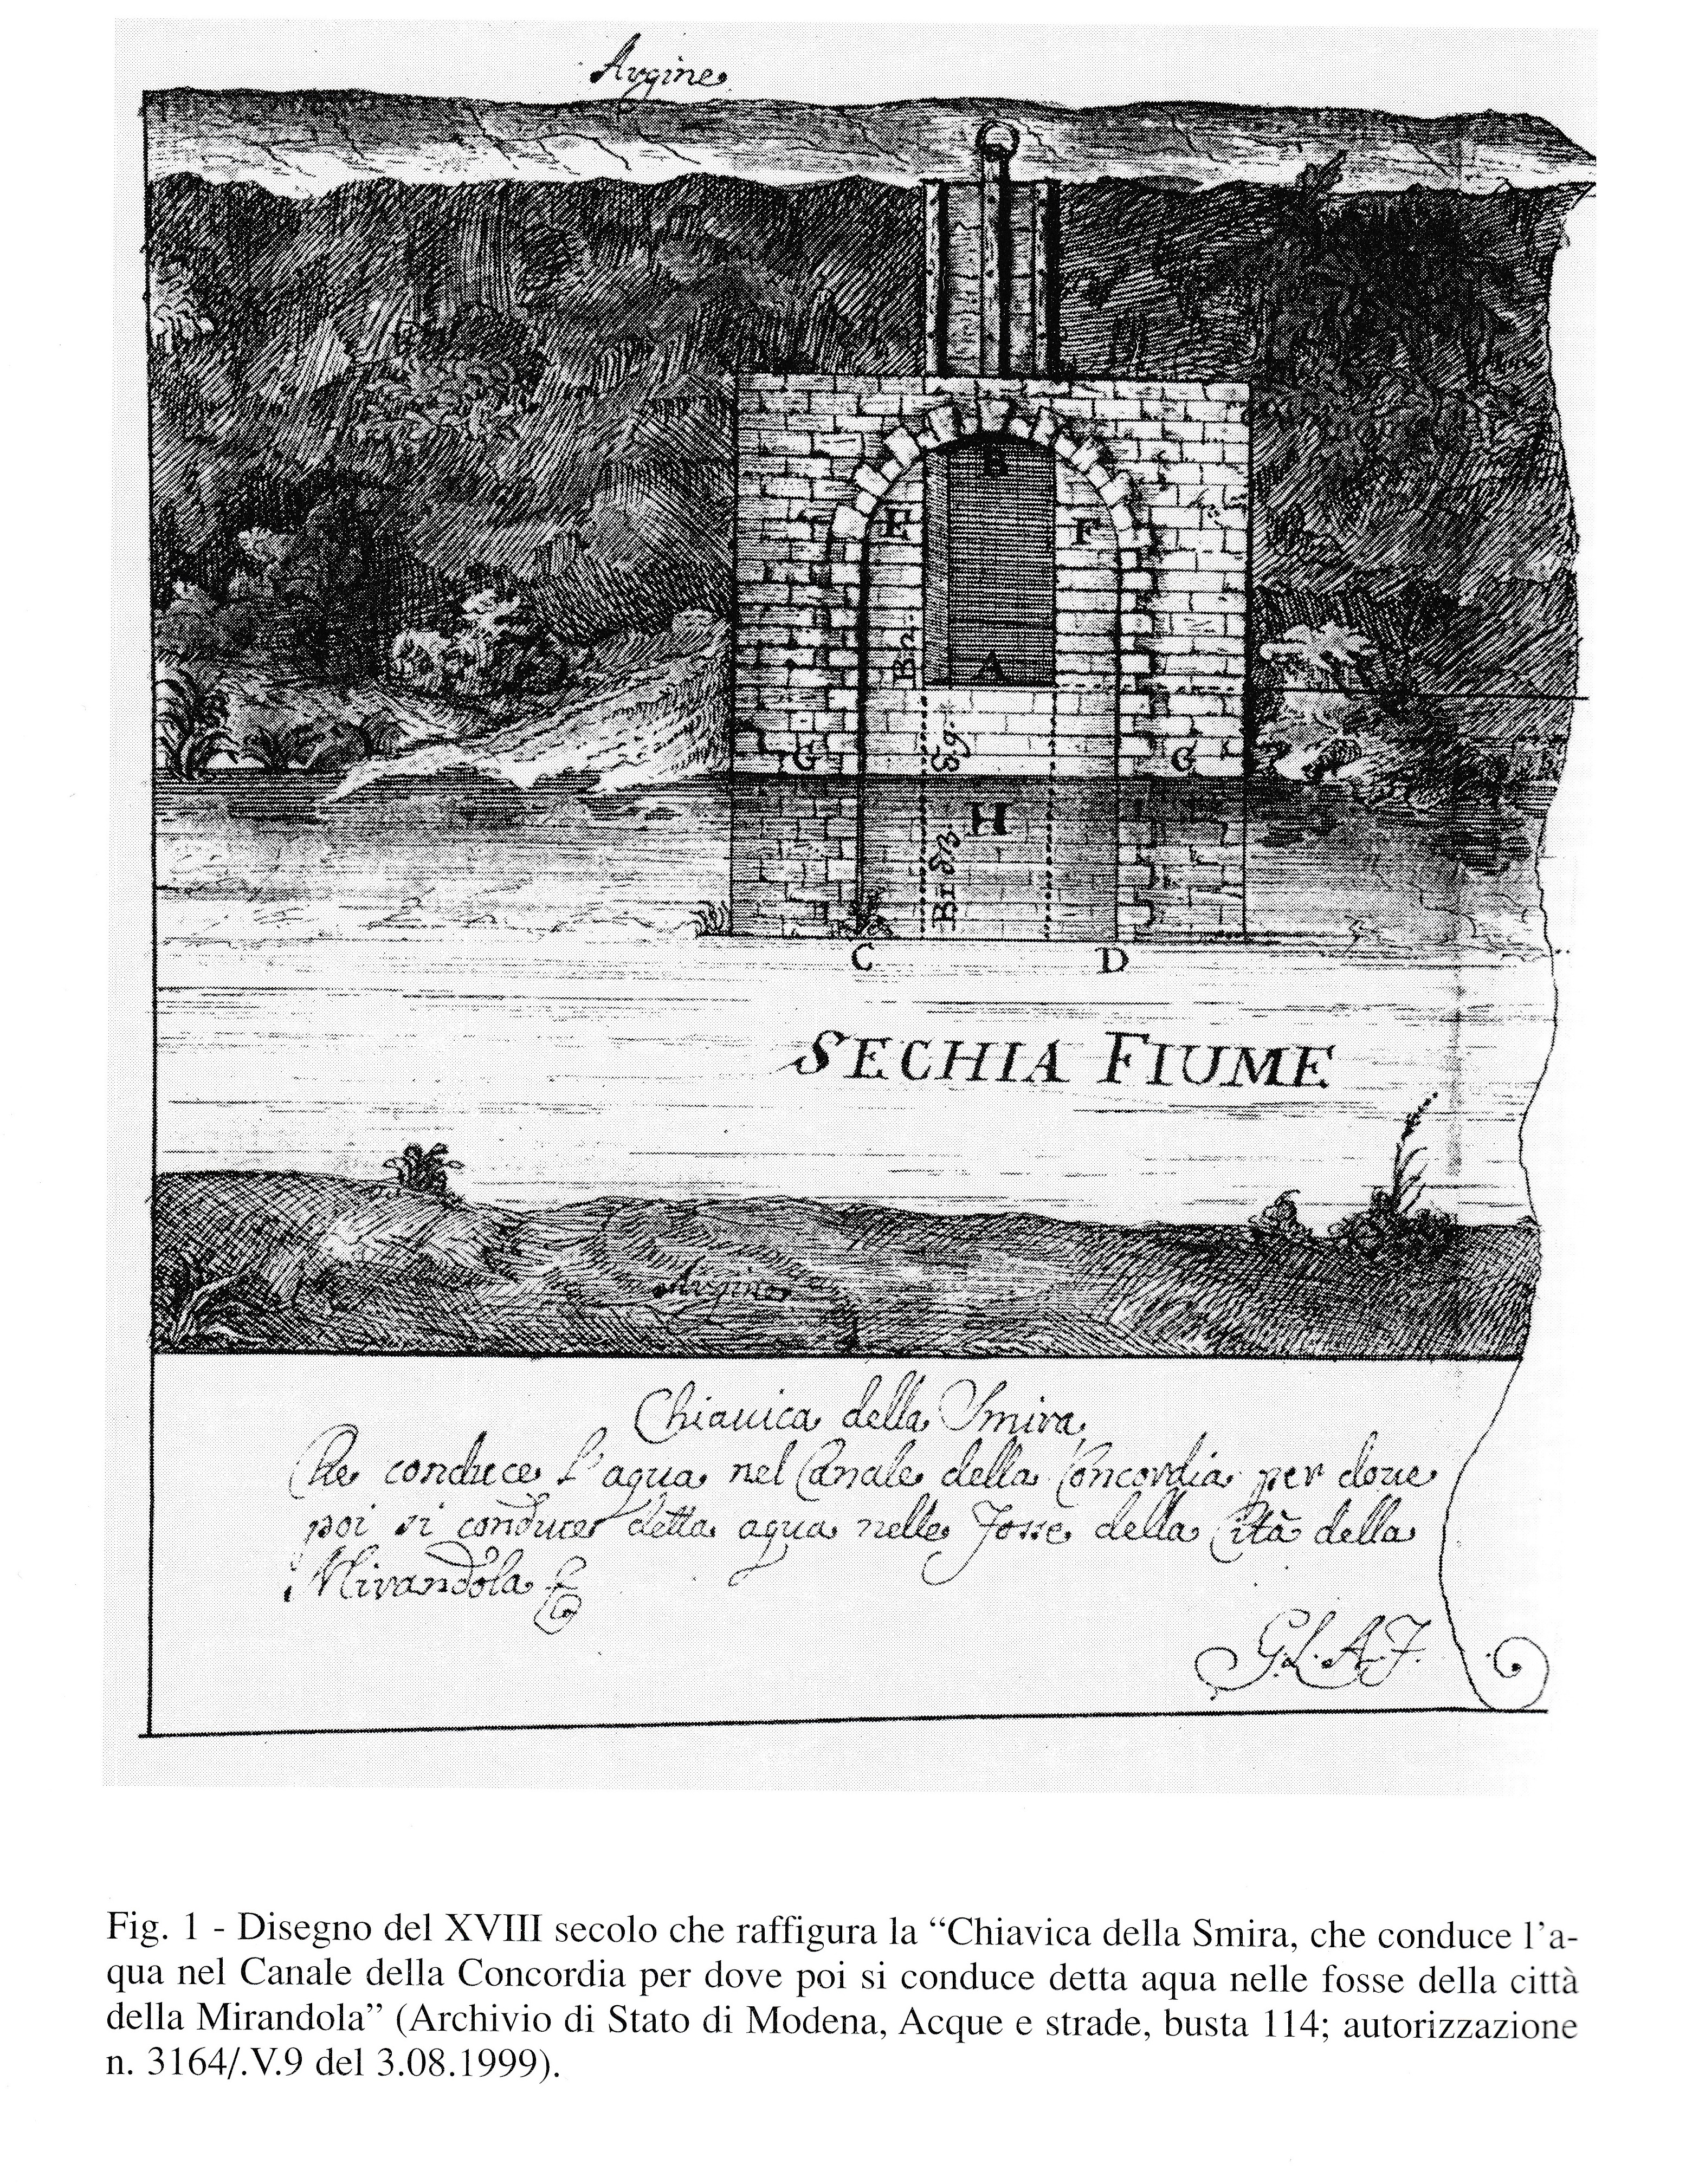 Argine
B
E
F
Br.
A
G
G
H
C
D
SECHIA FIUME
Argine
Chiauica della Smira
Che conduce l'aqua nel Canale della Concordia per doue
poi si conduce detta aqua nelle fosse della Cità della
Mirandola
G.L.A.F.
Fig. 1 - Disegno del XVIII secolo che raffigura la “Chiavica della Smira, che conduce l’a-
qua nel Canale della Concordia per dove poi si conduce detta aqua nelle fosse della città
della Mirandola” (Archivio di Stato di Modena, Acque e strade, busta 114; autorizzazione
n. 3164/.V.9 del 3.08.1999).